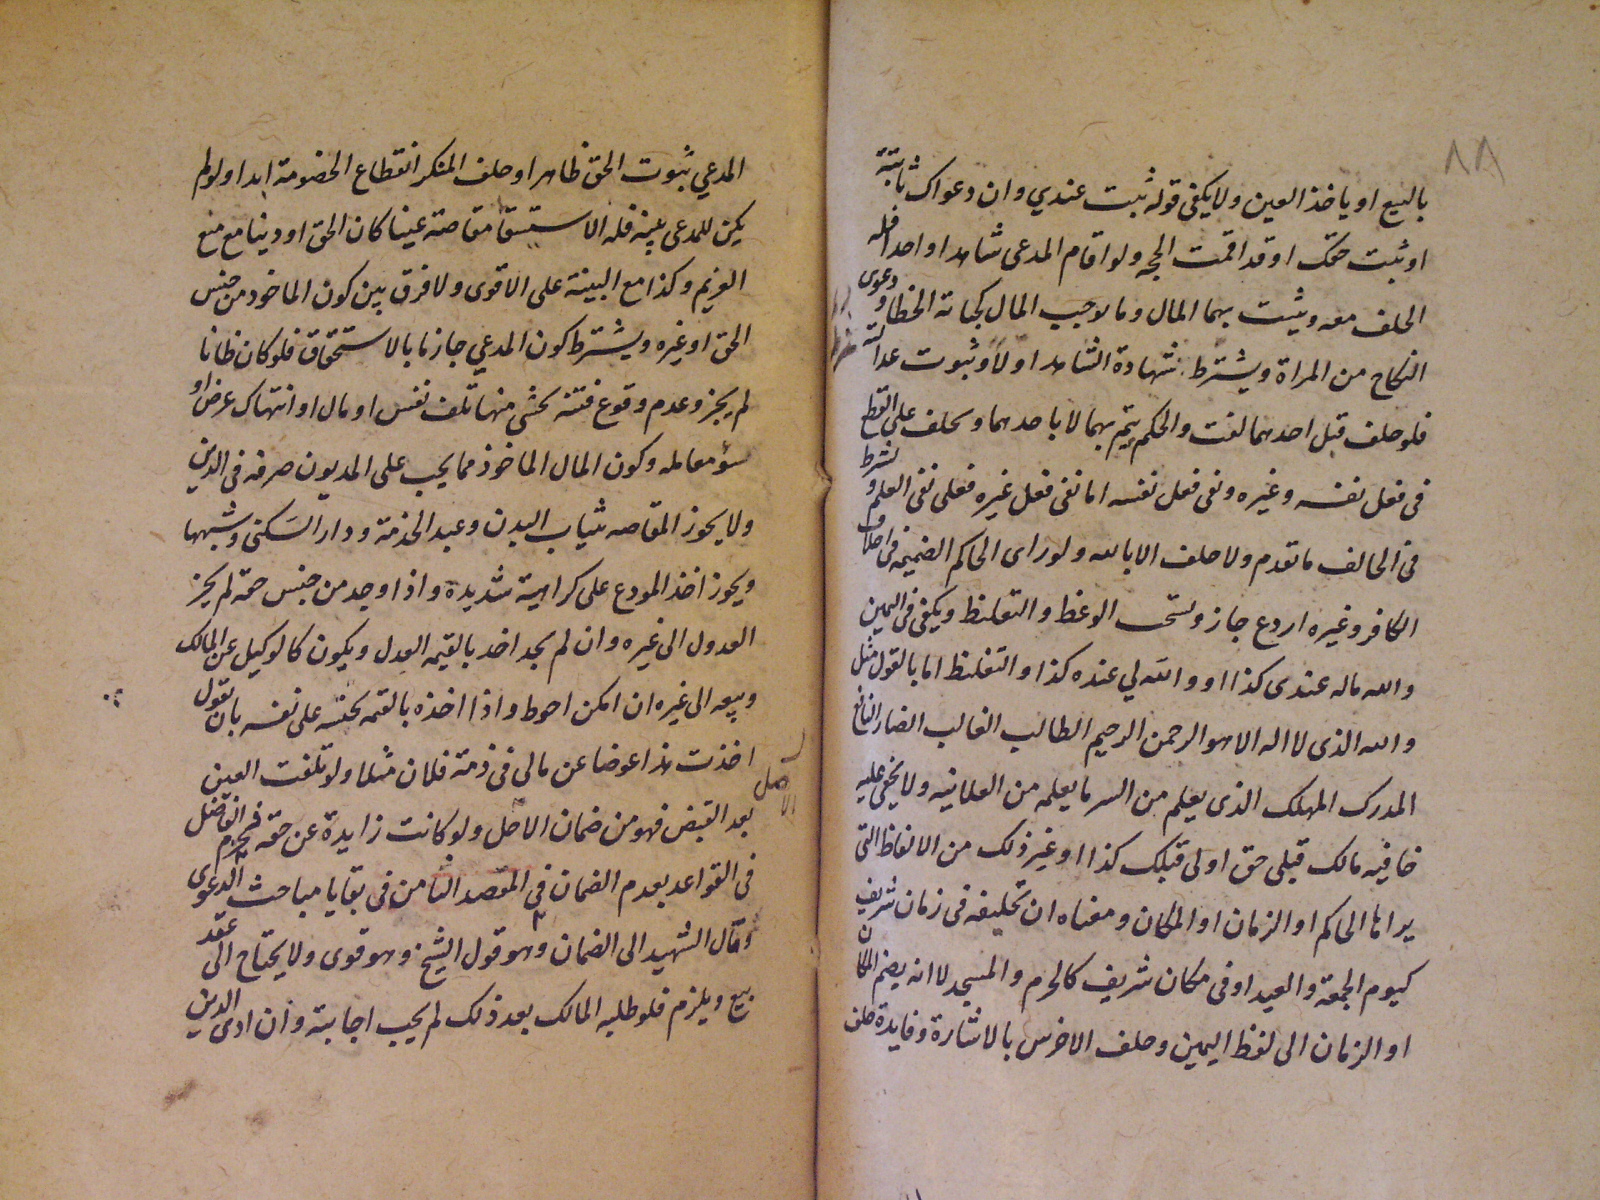 ٨٨
بالبيع او ياخذ العين ولا يكفى قوله ثبت عندي وان دعواك ثابتة
او ثبت حقك او قد اقمت الحجه ولو اقام المدعى شاهدا واحدا فله
الحلف معه ويثبت بهما المال وما يوجب المال كجناية الخطا ودعوى
النكاح من المراة ويشترط شهادة الشاهد اولا وثبوت عدالته
فلو حلف قبل احدهما لغت والحكم يتم بهما لا باحدهما ويحلف على القطع
فى فعل نفسه وغيره ونفى فعل نفسه اما نفى فعل غيره فعلى نفى العلم ويشترط
فى الحالف ما تقدم ولا حلف الا بالله ولو راى الحاكم الضميمه فى احلاف
الكافر وغيره اردع جاز ويستحب الوعظ والتغليظ ويكفى فى اليمين
والله ماله عندى كذا او والله لي عنده كذا والتغليظ اما بالقول مثل
والله الذى لا اله الا هو الرحمن الرحيم الطالب الغالب الضار النافع
المدرك المهلك الذى يعلم من السر ما يعلمه من العلانيه ولا يخفى عليه
خافيه مالك قبلى حق او لى قبلك كذا او غير ذلك من الالفاظ التى
يراها الحاكم او الزمان او المكان ومعناه ان تحليفه فى زمان شريف
كيوم الجمعة والعيد او فى مكان شريف كالحرم والمسجد لا انه يضم المكان
او الزمان الى لفظ اليمين وحلف الاخرس بالاشارة وفايدة حلف
المدعي ثبوت الحق ظاهرا وحلف المنكر انقطاع الخصومة ابدا ولو لم
يكن للمدعى بينه فله الاستيفا مقاصة عينا كان الحق او دينا مع منع
الغريم وكذا مع البينة على الاقوى ولا فرق بين كون الماخوذ من جنس
الحق او غيره ويشترط كون المدعي جازما بالاستحقاق فلو كان ظانا
لم يجز وعدم وقوع فتنه يخشى منها تلف نفس او مال او انتهاك عرض او
سؤ معامله وكون المال الماخوذ مما يجب على المديون صرفه فى الدين
ولا يجوز المقاصه ثياب البدن وعبد الخدمة ودار السكنى وشبهها
ويجوز اخذ المودع على كراهية شديدة واذا وجد من جنس حقه لم يجز
العدول الى غيره وان لم يجد اخذ بالقيمه العدل ويكون كالوكيل عن المالك
وبيعه الى غيره ان امكن احوط واذا اخذه بالقيمه يحتسبه على نفسه بان يقول
اخذت هذا عوضا عن مالى فى ذمة فلان مثلا ولو تلفت العين
بعد القبض فهو من ضمان الاخذ ولو كانت زايدة عن حقه فجزم
فى القواعد بعدم الضمان فى المقصد الثامن فى بقايا مباحث الدعوى
وقال الشهيد الى الضمان وهو قول الشيخ وهو قوى ولا يحتاج الى عقد
بيع ويلزم فلو طلبه المالك بعد ذلك لم يجب اجابته وان ادى الدين